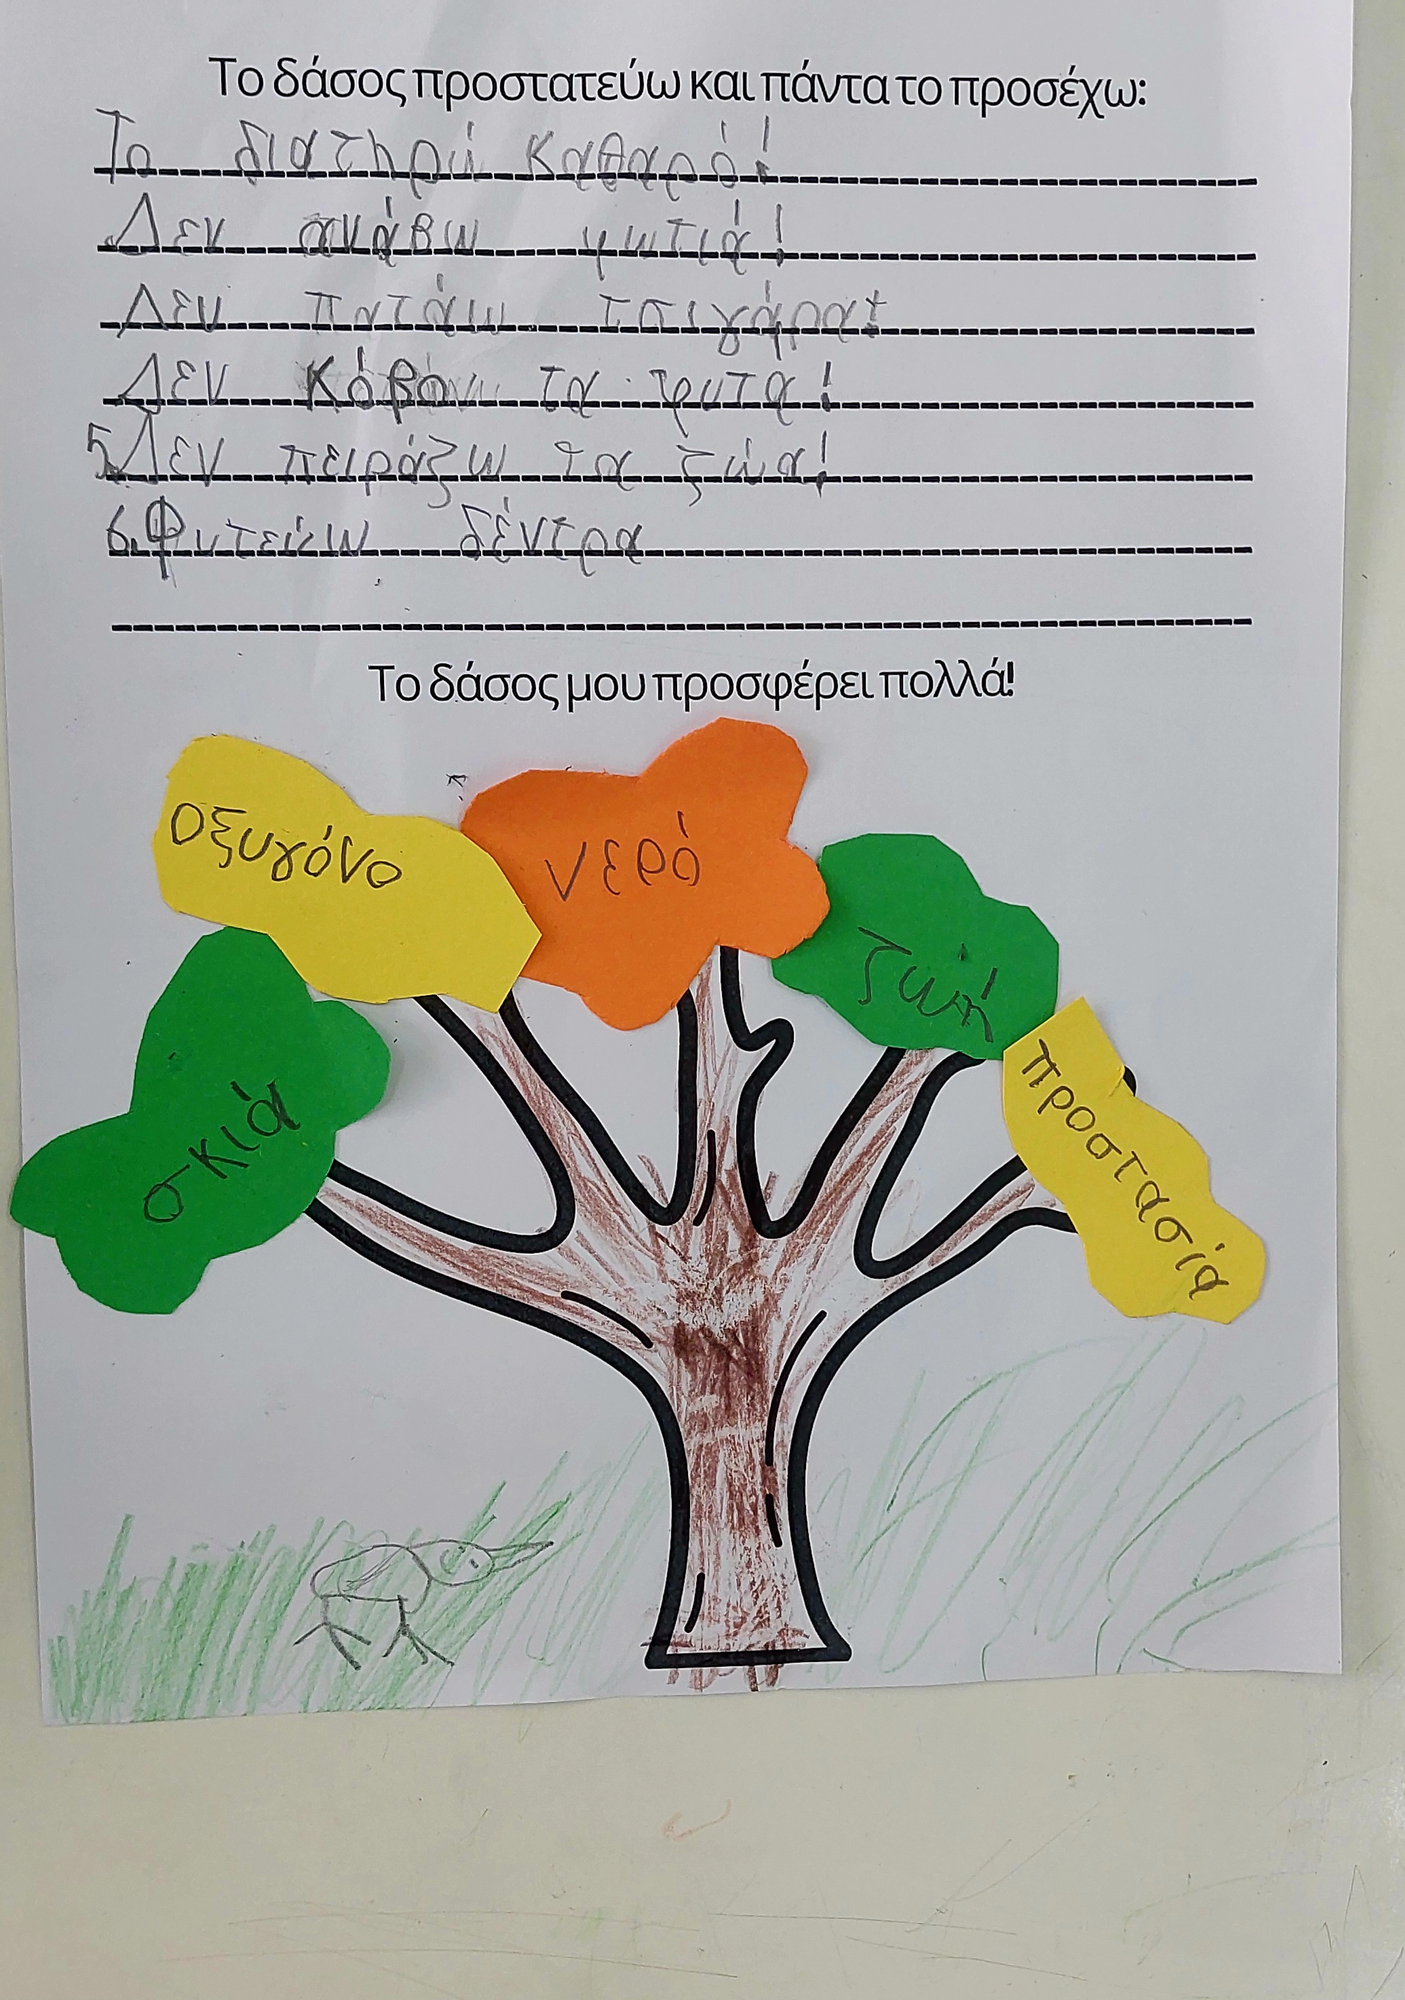 Το δάσος προστατεύω και πάντα το προσέχω:
Το διατηρώ καθαρό!
Δεν ανάβω φωτιά!
Δεν πατάω τσιγάρα!
Δεν κόβω τα φυτά!
5. Δεν πειράζω τα ζώα!
6. Φυτεύω δέντρα
Το δάσος μου προσφέρει πολλά!
οξυγόνο
νερό
ζωή
σκιά
προστασία